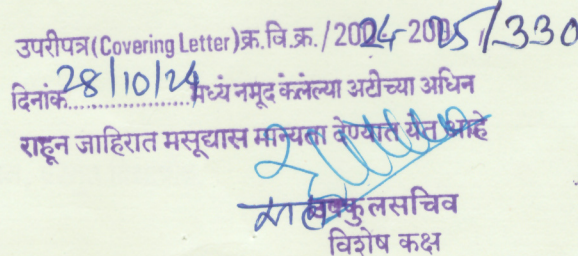 उपरीपत्र(Covering Letter)क्र.वि.क्र./2024-2025/330
दिनांक 28/10/24 मध्ये नमूद केलेल्या अटीच्या अधिन
राहून जाहिरात मसूद्यास मान्यता देण्यात येत आहे
उपकुलसचिव
विशेष कक्ष